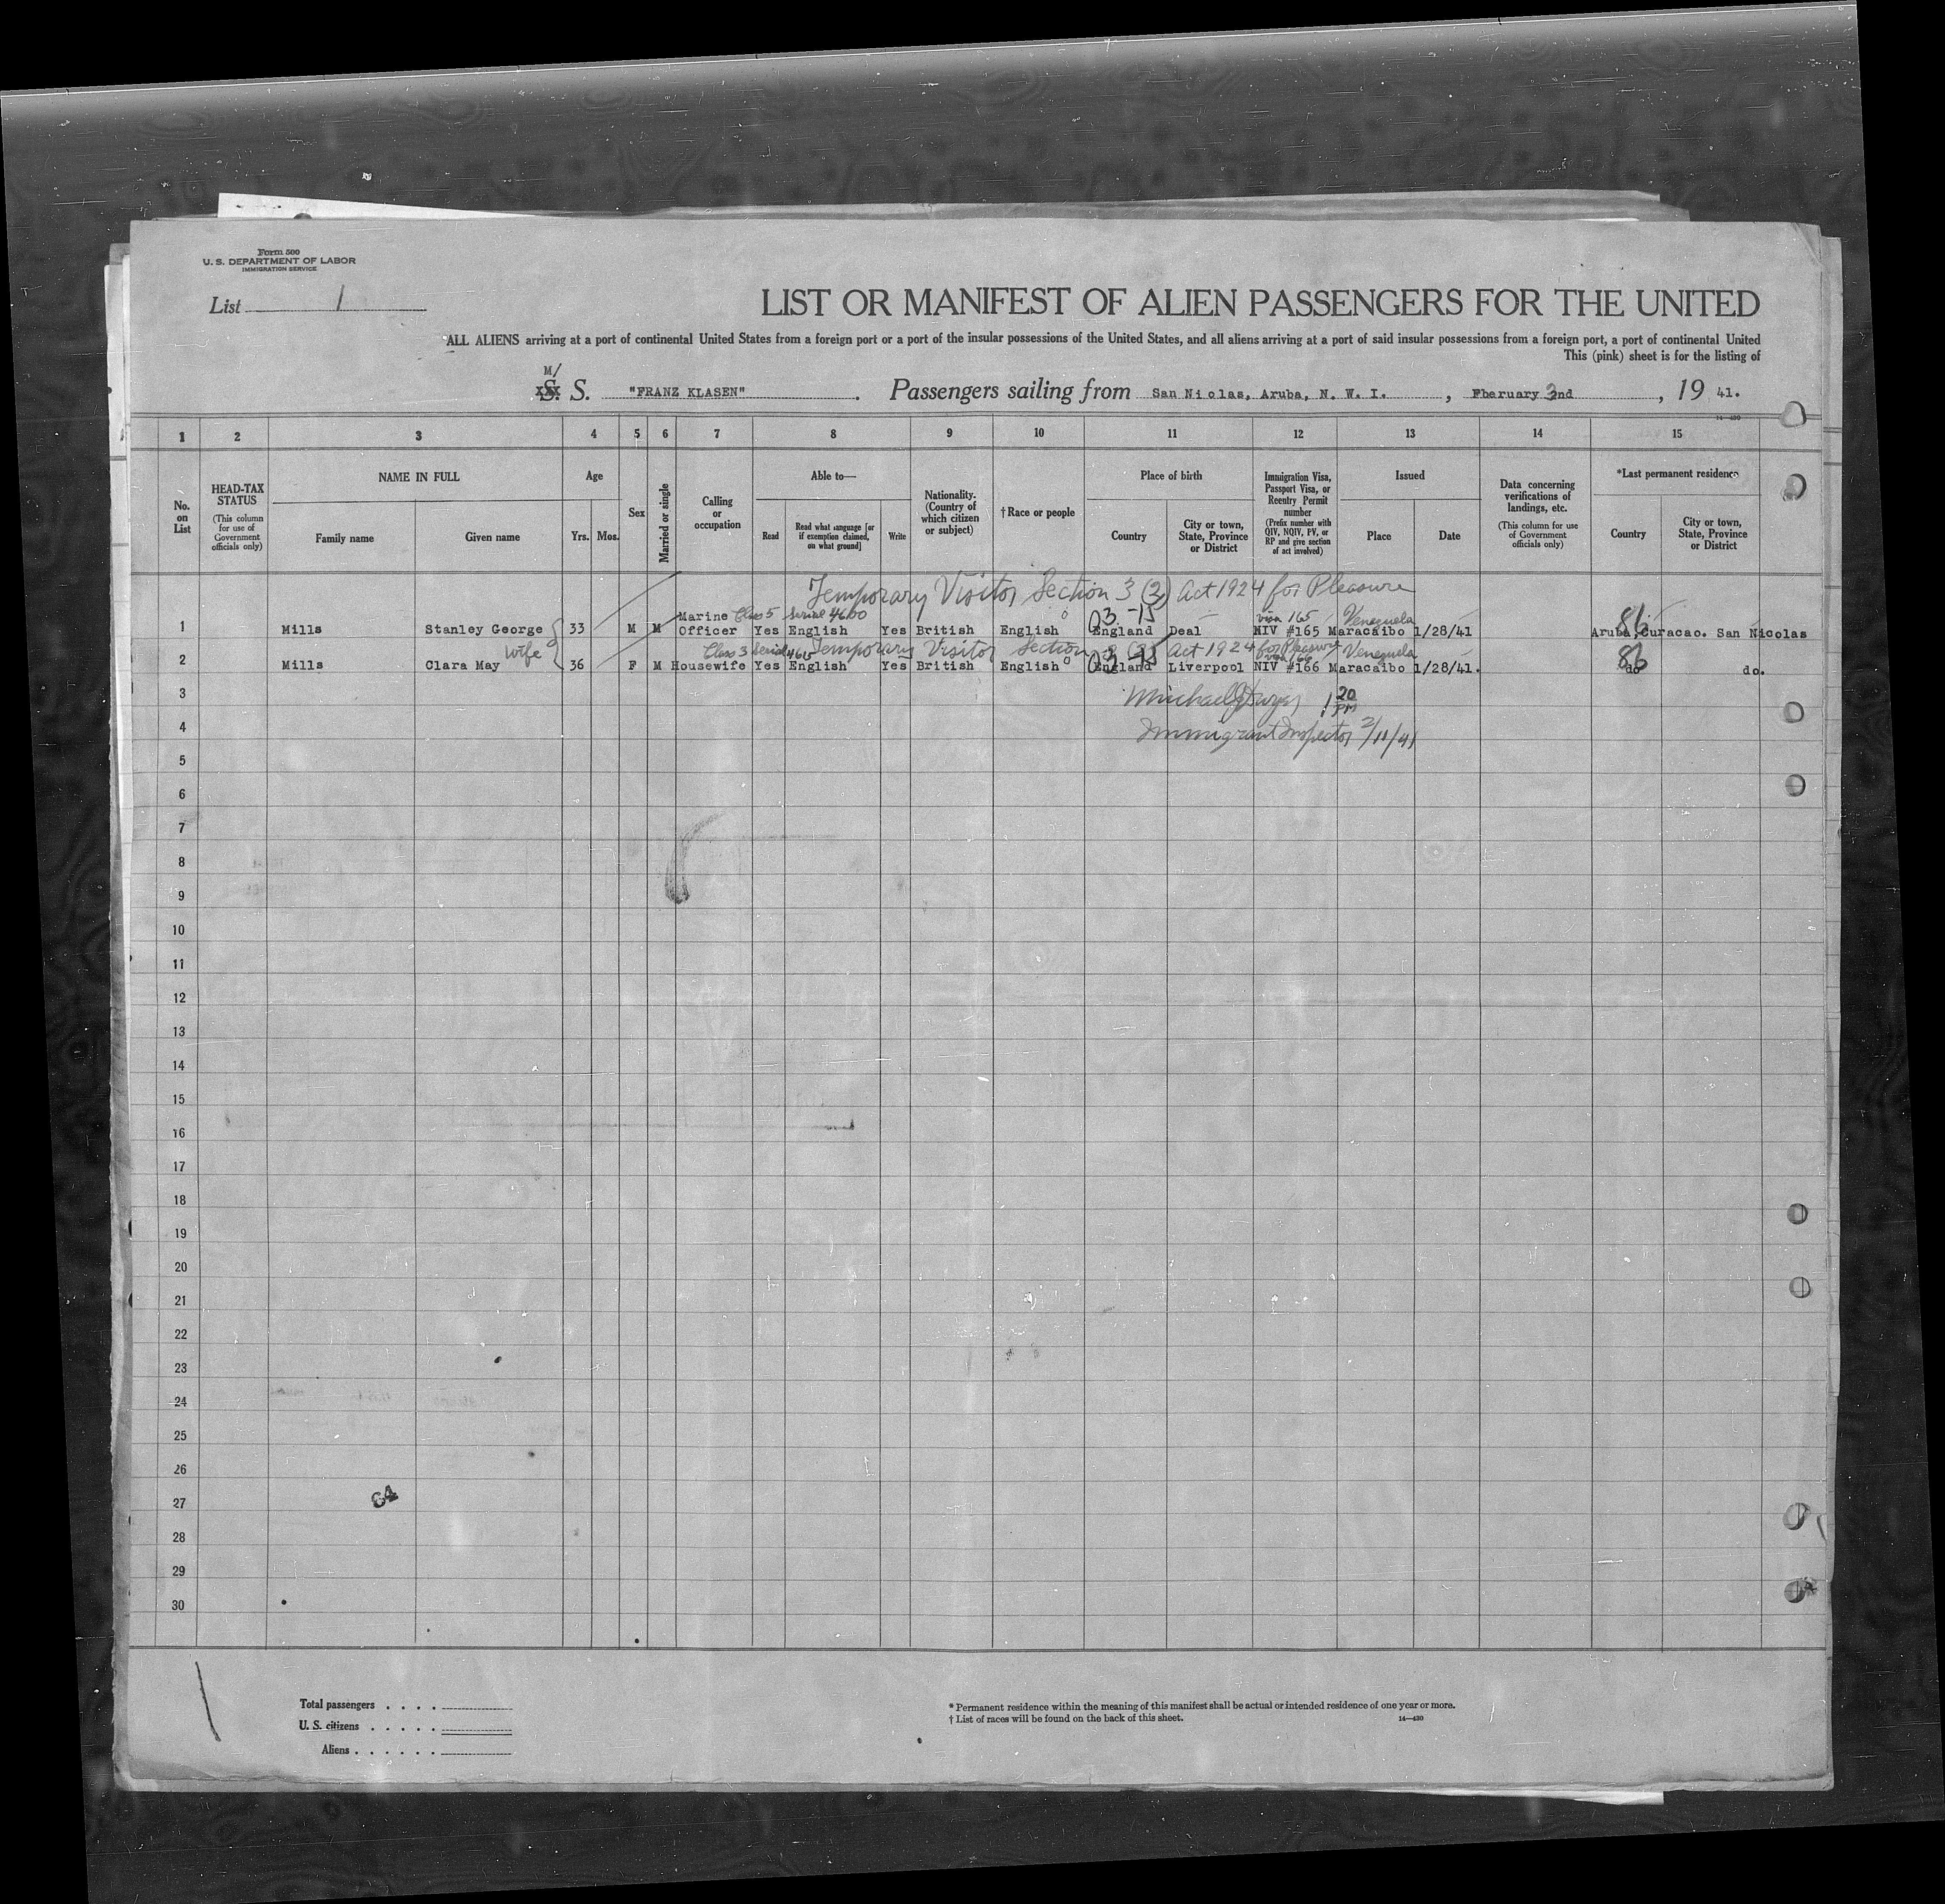 Form 500
U. S. DEPARTMENT OF LABOR
IMMIGRATION SERVICE
List 1
LIST OR MANIFEST OF ALIEN PASSENGERS FOR THE UNITED
ALL ALIENS arriving at a port of continental United States from a foreign port or a port of the insular possessions of the United States, and all aliens arriving at a port of said insular possessions from a foreign port, a port of continental United
This (pink) sheet is for the listing of
M/
S. S. "FRANZ KLASEN". Passengers sailing from San Nicolas, Aruba, N. W. I. , Fberuary 2nd , 19 41.
14—430
1 2 3 4 5 6 7 8 9 10 11 12 13 14 15
No. on List
HEAD-TAX STATUS
(This column for use of Government officials only)
NAME IN FULL
Family name Given name
Age
Yrs. Mos.
Sex
Married or single
Calling or occupation
Able to—
Read Read what language [or if exemption claimed, on what ground] Write
Nationality. (Country of which citizen or subject)
†Race or people
Place of birth
Country City or town, State, Province or District
Immigration Visa, Passport Visa, or Reentry Permit number
(Prefix number with QIV, NQIV, PV, or RP and give section of act involved)
Issued
Place Date
Data concerning verifications of landings, etc.
(This column for use of Government officials only)
*Last permanent residence
Country City or town, State, Province or District
Temporary Visitor Section 3 (2) Act 1924 for Pleasure
Class 5 Serial 4600 03 -15 visa 165 Venezuela 86
1 Mills Stanley George 33 M M Marine Officer Yes English Yes British English England Deal NIV #165 Maracaibo 1/28/41 Aruba, Curacao. San Nicolas
wife Class 3 Serial Temporary Visitor Section 3 (2) Act 1924 for Pleasure
03 -15 visa 166 Venezuela 86
2 Mills Clara May 36 F M Housewife Yes English Yes British English England Liverpool NIV #166 Maracaibo 1/28/41. do do.
3 Michael 1 20 PM
4 Immigrant Inspector 2/11/41
5
6
7
8
9
10
11
12
13
14
15
16
17
18
19
20
21
22
23
24
25
26
27
64
28
29
30
Total passengers . . . .
U. S. citizens . . . . .
Aliens . . . . . .
* Permanent residence within the meaning of this manifest shall be actual or intended residence of one year or more.
† List of races will be found on the back of this sheet. 14—430